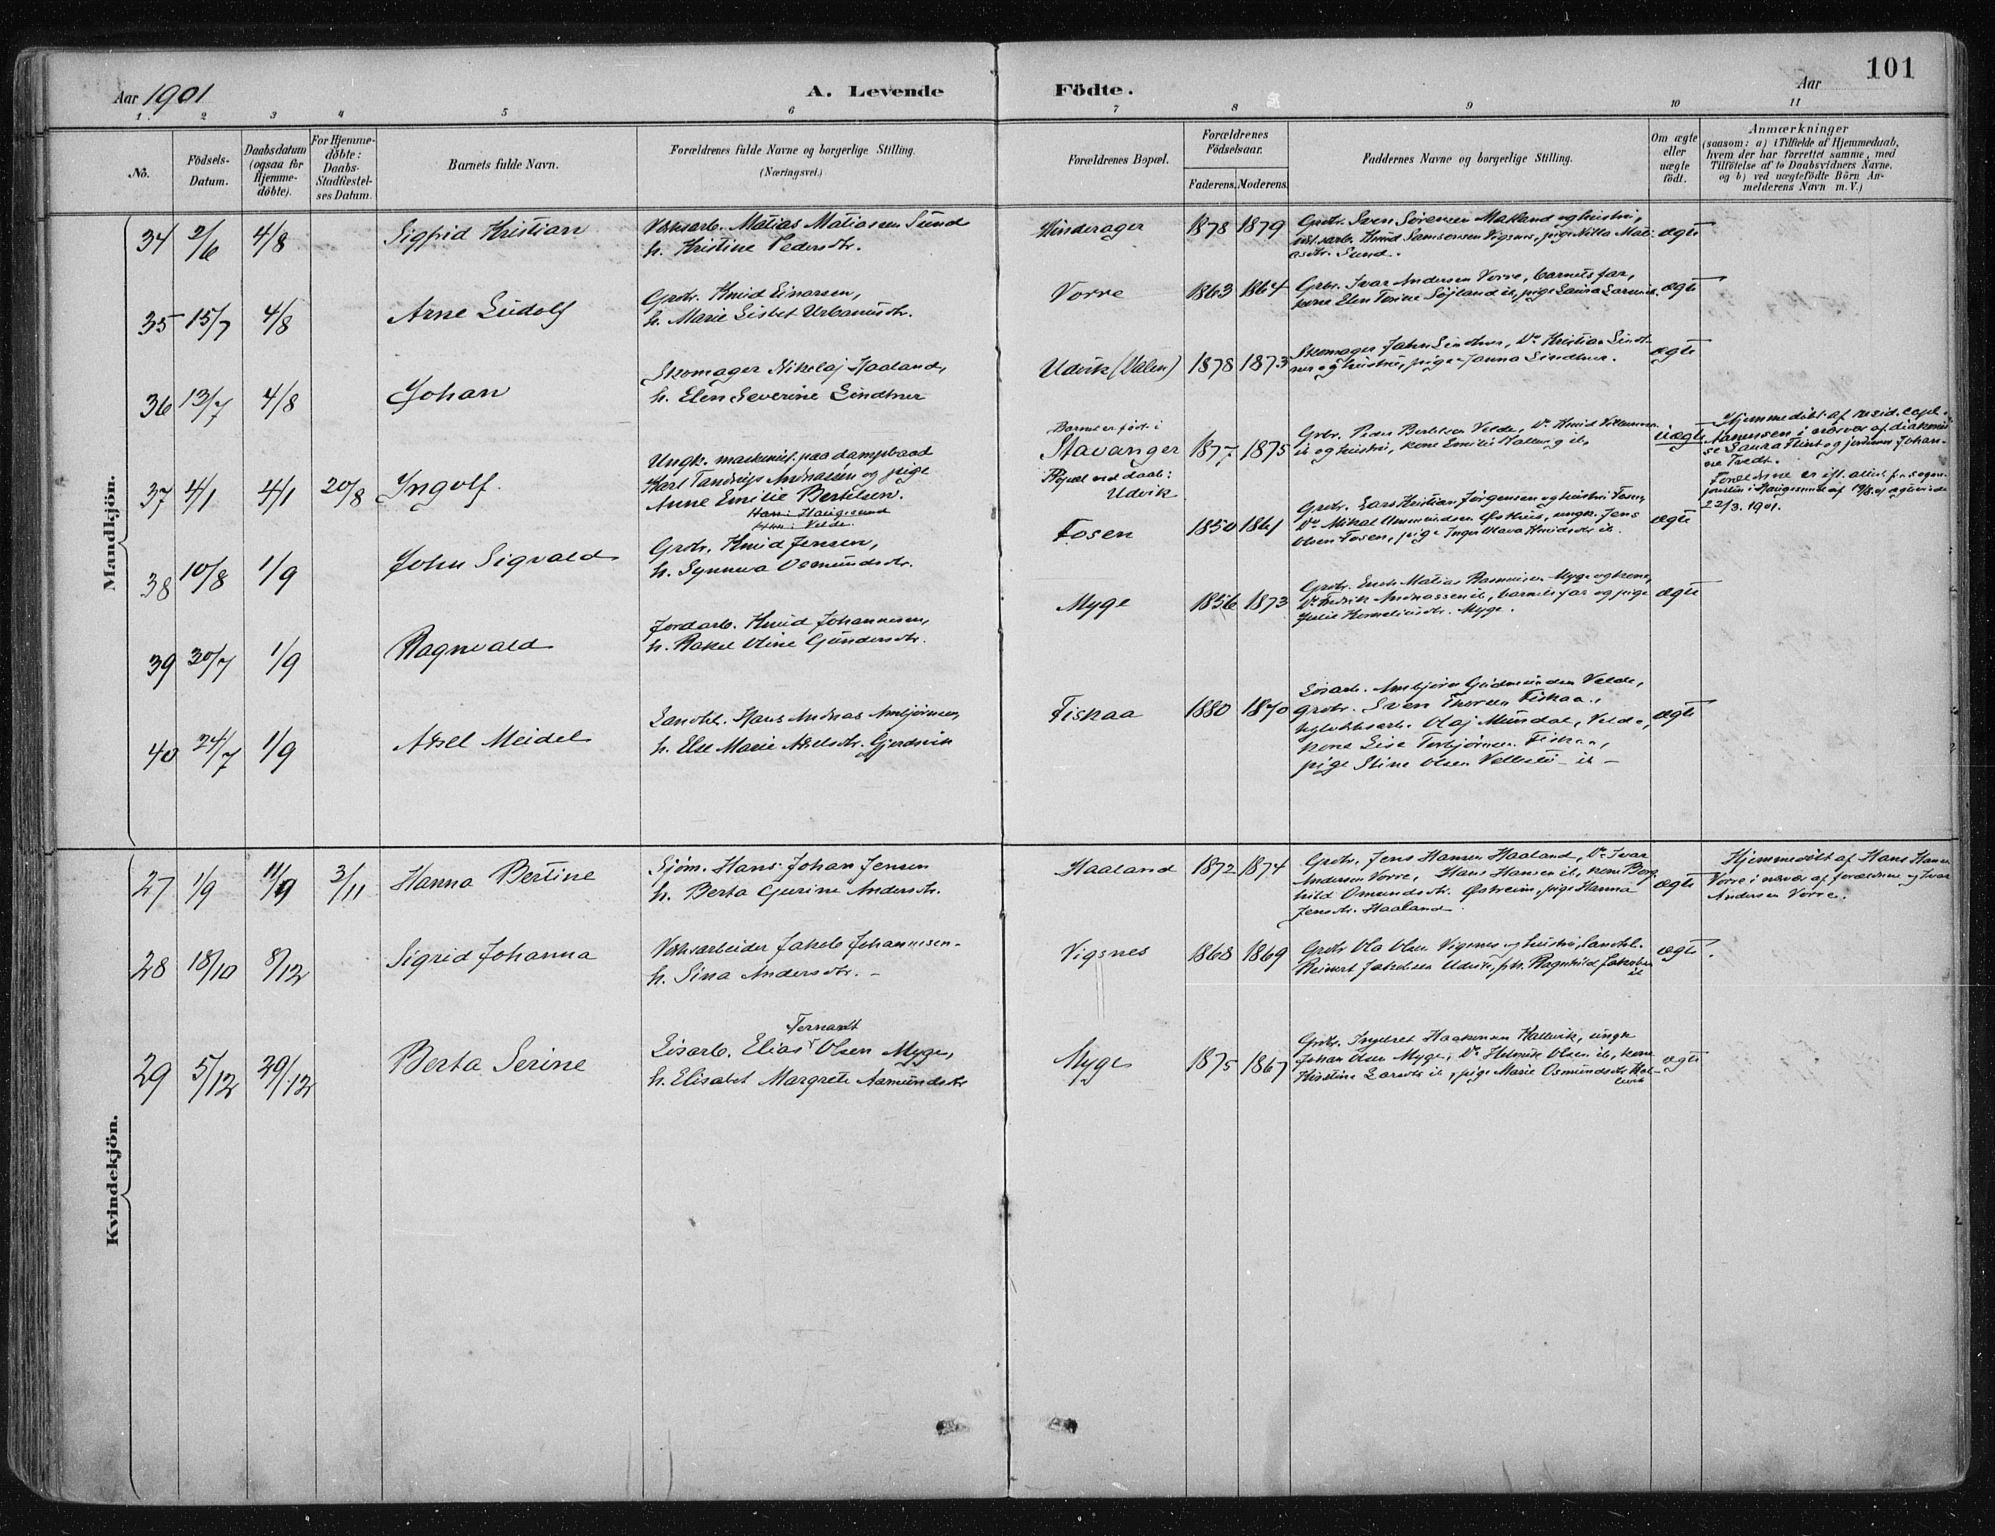 Aar 1901
A. Levende Födte.
Aar
101
1. 2 3 4 5 6 7 8 9 10 11
No.
Födsels-Datum.
Daabsdatum (ogsaa for Hjemme-döbte).
For Hjemme-döbte: Daabs-Stadfæstel-ses Datum.
Barnets fulde Navn.
Forældrenes fulde Navne og borgerlige Stilling.
(Næringsvei.)
Forældrenes Bopæl.
Forældrenes Födselsaar.
Faderens. Moderens.
Faddernes Navne og borgerlige Stilling.
Om ægte eller uægte født.
Anmærkninger
(saasom: a) i Tilfælde af Hjemmedaab, hvem der har forrettet samme, med Tilföielse af to Daabsvidners Navne, og b) ved uægtefödte Börn An-melderens Navn m. V.)
Mandkjön.
34 2/6 4/8 Sigfrid Kristian
Matias Matiasen Sund
h. Kristine Pedersdtr.
Hinderager 1878 1879
Grbr. Sven Sørensen Matland og hustru,
Knud Samsonsen Vigsnes, pige
Sund.
ægte
35 15/7 4/8 Arne Ludolf
Grbr. Knud Einarsen,
h. Marie Lisbet Urbanusdtr.
Vorre 1863 1864
Grbr. Ivar Andersen Vorre, barnets far,
kone Elen ib., pige Laura
ægte
36 13/7 4/8 Johan
Skomager Nikolaj Haaland,
h. Elen Severine Lindtner
Udvik (Valen) 1878 1873
Skomager John Lindtner, Do Kristian Lindt-
ner og hustru, pige Janna Lindtner.
ægte
37 4/1 4/1 20/8 Ingolf
Ungk. maskinist paa dampbaad
Karl Andreasen og pige
Anne Emilie Bertelsen.
Han: Haugesund
Velde.
Barnet er født i
Stavanger
Bopæl ved daab:
Udvik
1877 1875
Grbr. Peder Bertelsen Velde, Do Knud
ib og hustru, kone Emilie ib.
uægte
Hjemmedøbt af resid. capel.
Asmussen i nærvær af diakonis-
se Laura Flint og jordmor Johan-
ne Tvedt.
Forældrene er ift. attest fra sogne-
presten i Haugesund af
22/3. 1901.
38 10/8 1/9 John Sigvald
Grbr. Knud Jensen,
h. Synneva Osmundsdtr.
Fosen 1850 1861
Grbr. Lars Kristian Jørgensen og hustru Fosen,
Do Mikal Ommundsen Østhus, ungk. Jens
Olsen Fosen, pige Inger Olava Knudsdtr ib.
ægte
39 30/7 1/9 Ragnvald
Jordarb. Knud Johannesen,
h. Rakel Oline Gundersdtr.
Myge 1856 1873
Grbr. Matias Rasmusen Myge og kone,
Do Fredrik Andreassen ib, barnets far og pige
Julie Korneliusdtr. Myge.
ægte
40 24/7 1/9 Aksel Meidel
Landhl. Hans Andreas Ambjørnsen,
h. Else Marie Nilsdtr. Gjerdevik
Fiskaa 1880 1870
Ambjørn Gudmundsen Velde,
grbr. Sven Thorsen Fiskaa,
Olaf Mundal, Velde,
kone Lise Torbjørnsen Fiskaa,
pige Stine Olsen - ib -
ægte
Kvindekjön.
27 1/9 11/9 3/11 Hanna Bertine
Sjøm. Hans Johan Jensen
h. Berta Gurine Andersdtr.
Haaland 1872 1874
Grbr. Jens Hansen Haaland, Do Ivar
Andersen Vorre, Hans Hansen ib, kone Borg-
hild Omundsdtr. Østreim, pige Hanna
Jensdtr. Haaland.
ægte
Hjemmedøbt af Hans Hansen
Vorre i nærvær af forældrene og Ivar
Andersen Vorre.
28 18/10 8/12 Sigrid Johanna
Verksarbeider Jakob Johannesen -
h. Sina Andersdtr. -
Vigsnes 1868 1869
Grbr Ola Olsen Vigsnes og hustru, landhl.
Reinert Jakobsen Udvik, frk. Ragnhild Jakobsen
ib
ægte
29 5/12 29/12 Berta Serine
Fernandt
Elias Olsen Myge,
h. Elisabet Margrete Aamundsdtr
Myge 1875 1867
Grbr. Ingebret Haakonsen Kallevik, ungk
Johan Olsen Myge, Do Helmik Olsen ib, kone
Kirstine Larsdtr ib, pige Marie Osmundsdtr Kal-
levik
ægte